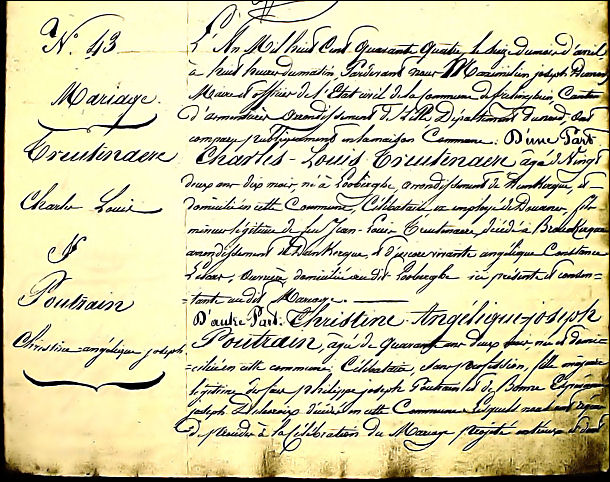 N. 43
Mariage
Treutenaere
Charles Louis
&
Poutrain
Christine-angélique joseph
L'An Mil huit Cent Quarante Quatre le seize du mois d'avril
à huit heures du matin Pardevant nous Maximilien joseph
Maire et officier de l'Etat civil de la commune de Canton
d'armentières arrondissement de Lille Département du nord, sont
comparu publiquement en la maison Commune. D'une Part
Charles-Louis Treutenaere agé de Vingt
deux ans dix mois, né à Looberghe, arrondissement de Dunkerque, et
domicilié en cette Commune, Célibataire, employé de Douane, fils
mineur légitime de feu Jean-Louis Treutenaere, décédé à
arrondissement de Dunkerque, et d'encore vivante angélique Constance
ouvrière domiciliée au dit Looberghe ici présente et consen-
-tante au dit Mariage.
D'autre Part. Christine Angélique-joseph
Poutrain, agée de Quarante ans deux mois, née et domi-
-ciliée en cette commune, Célibataire, sans profession, fille majeure
légitime de feu philippe joseph Poutrain et de Bonne
joseph Delacroix décédés en cette Commune Lesquels nous ont requis
de procéder à la Célébration du Mariage projeté entr'eux et dont